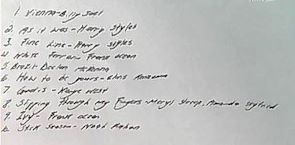 1. Vienna - Billy Joel
2. As it was - Harry Styles
3. Fine Line - Harry Styles
4. White Ferrari - Frank ocean
5. Brazil - Declan McKenna
6. How to be yours - Chris Renzema
7. Good - Kanye West
8. Slipping Through my Fingers - Meryl Streep, Amanda Seyfried
9. Ivy - Frank ocean
10. Stick Season - Noah Kahan